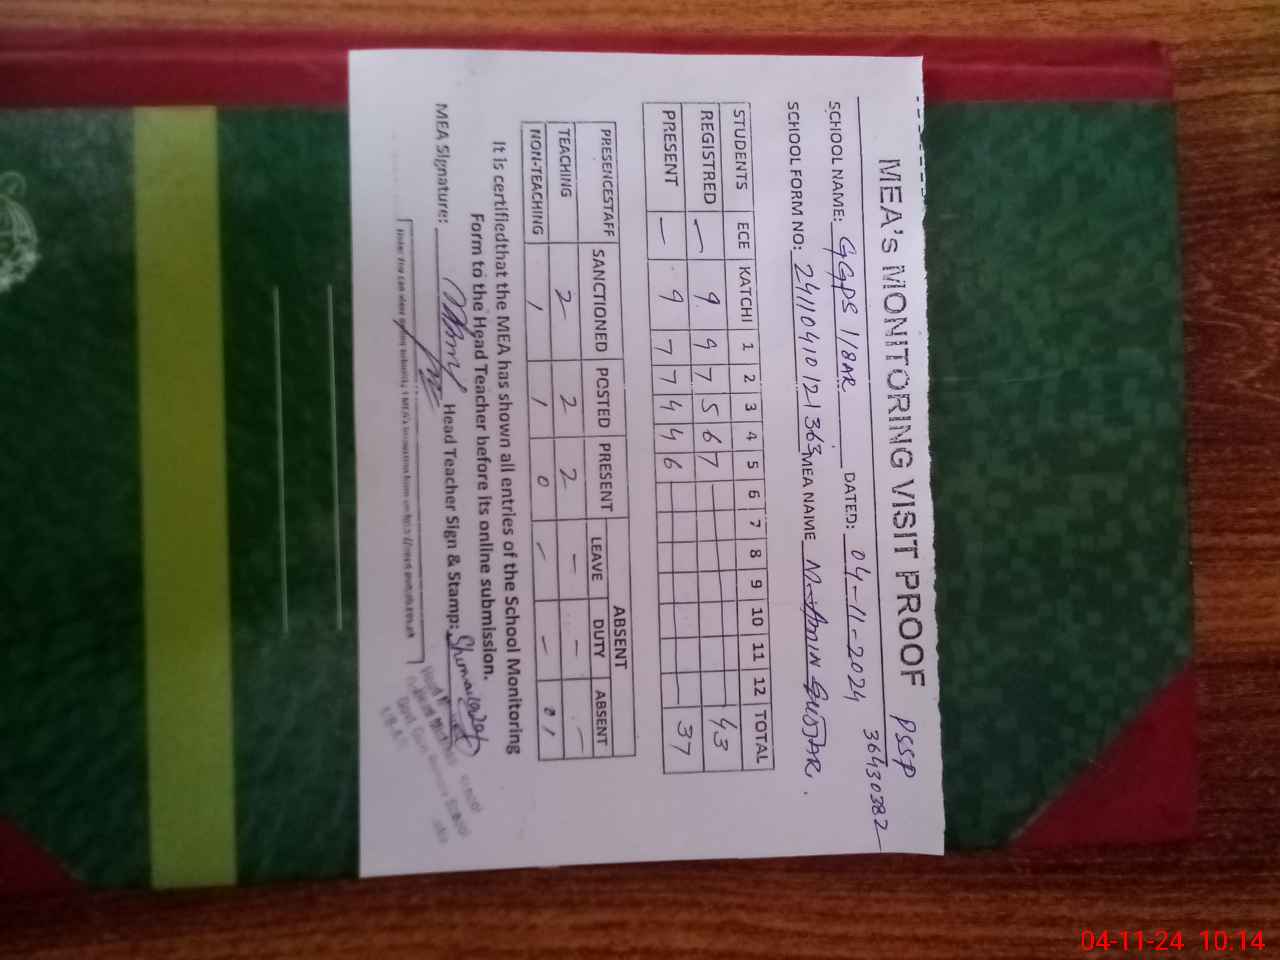 MEA's MONITORING VISIT PROOF PSSP
36430382
SCHOOL NAME: GGPS 118AR DATED: 04-11-2024
SCHOOL FORM NO: 24110410121363 MEA NAME M. AMIN GUJJAR.
STUDENTS ECE KATCHI 1 2 3 4 5 6 7 8 9 10 11 12 TOTAL
REGISTRED — 9 9 7 5 6 7 43
PRESENT — 9 7 7 4 4 6 37
ABSENT
PRESENCESTAFF SANCTIONED POSTED PRESENT LEAVE DUTY ABSENT
TEACHING 2 2 2 - - -
NON-TEACHING 1 1 0 - - 01
It is certifiedthat the MEA has shown all entries of the School Monitoring
Form to the Head Teacher before its online submission.
MEA Signature: Head Teacher Sign & Stamp:
04-11-24 10:14